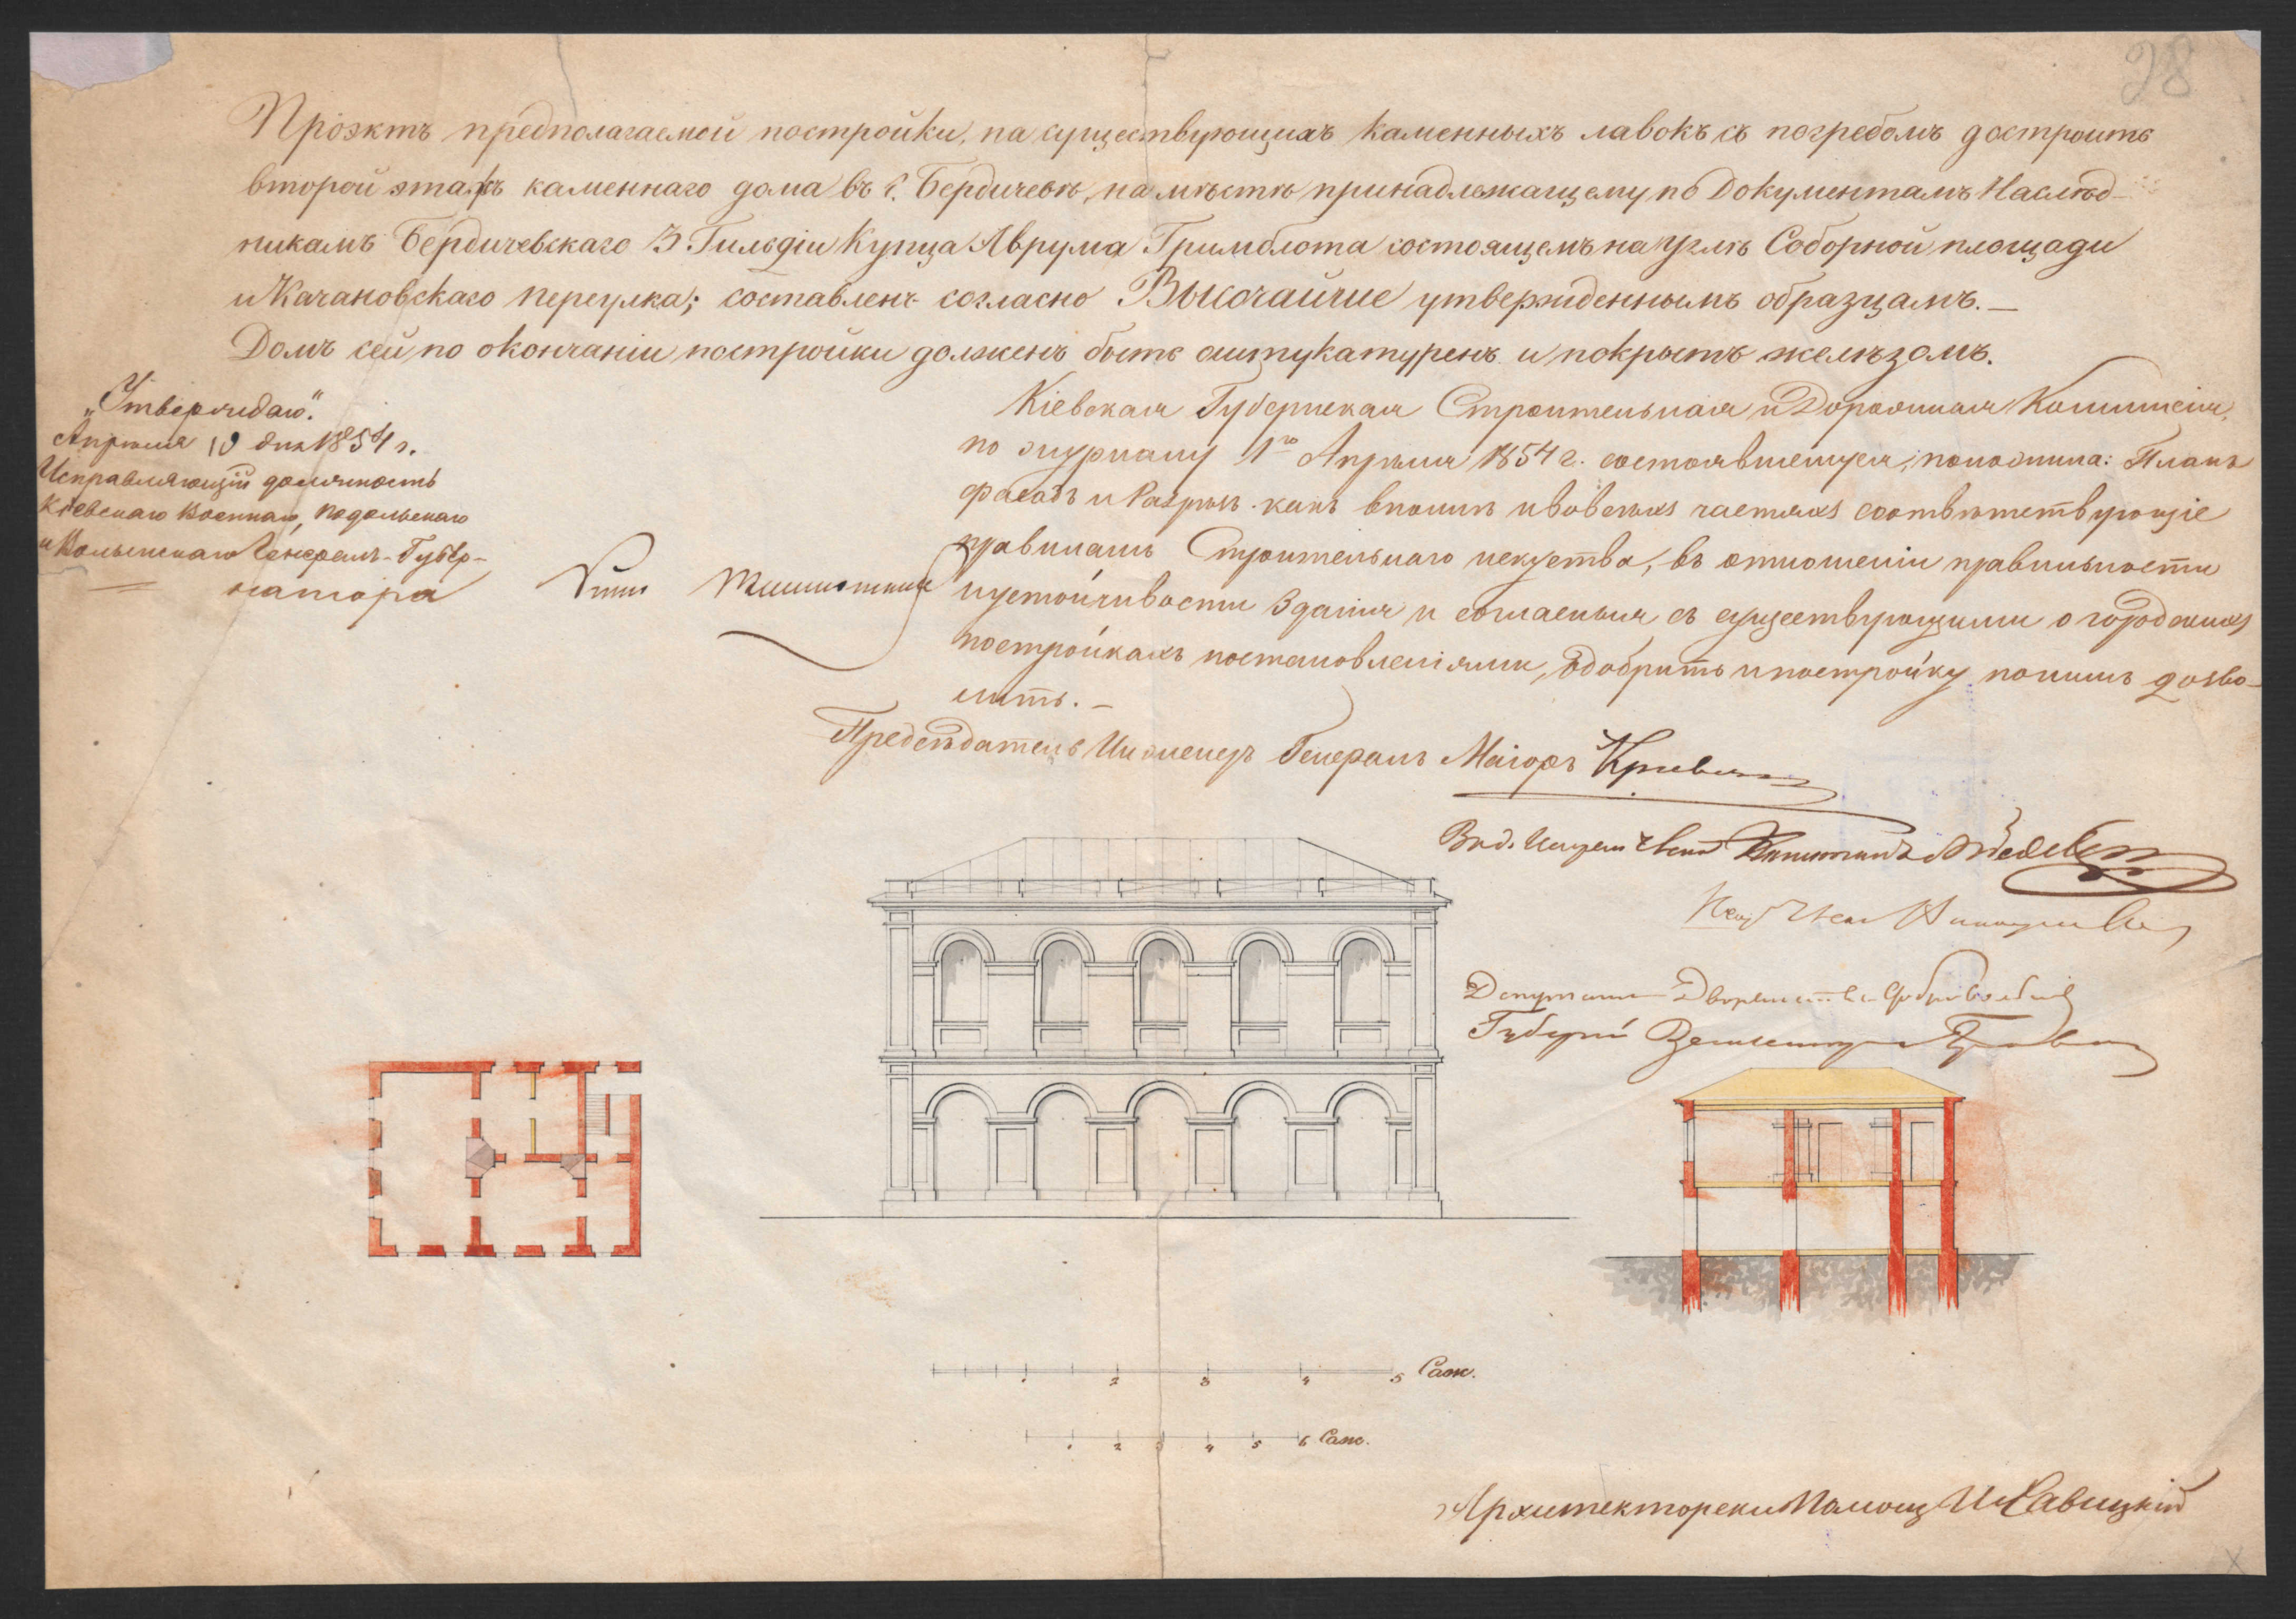 28
Проэктъ предполагаемой постройки, на существующихъ каменныхъ лавокъ съ погребомъ достроить
второй этажъ каменнаго дома въ г. Бердичевѣ, на мѣстѣ принадлежащему по Документамъ Наслѣд-
никамъ Бердичевскаго 3 Гильдіи Купца Аврума Гримблота состоящемъ на углѣ Соборной площади
и Качановскаго переулка; составленъ согласно Высочайше утвержденнымъ образцамъ.—
Домъ сей по окончаніи постройки долженъ быть оштукатуренъ и покрытъ желѣзомъ.
„Утверждаю".
Апрѣля 10 дня 1854 г.
Исправляющій должность
Кіевскаго Военнаго, Подольскаго
и Волынскаго Генералъ-Губер-
натора
Кіевская Губернская Строительная и Дорожная Коммисія,
по журналу 1го Апрѣля 1854 г. состоявшемуся, положила: Планъ
фасадъ и Разрѣзъ какъ вполнѣ и во всѣхъ частяхъ соотвѣтствующіе
правиламъ Строительнаго искуства, въ отношеніи правильности
и устойчивости зданія и согласныя съ существующими о городскихъ
постройкахъ постановленіями, одобрить и постройку по нимъ дозво-
лить.—
Предсѣдатель Инженеръ Генералъ Маіоръ
Депутатъ Дворянства
Губерн. Землемѣръ
1 2 3 4 5 Саж.
1 2 3 4 5 6 Саж.
Архитекторскій Помощ. И Савицкій